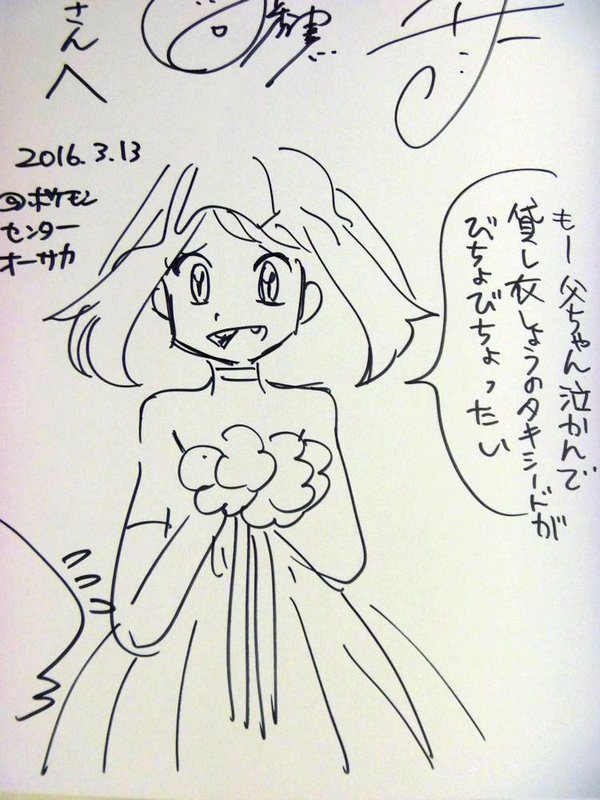 さんへ
2016.3.13
@ポケモン
センター
オーサカ
もー父ちゃん泣かんで
貸し衣しょうのタキシードが
びちょびちょったい